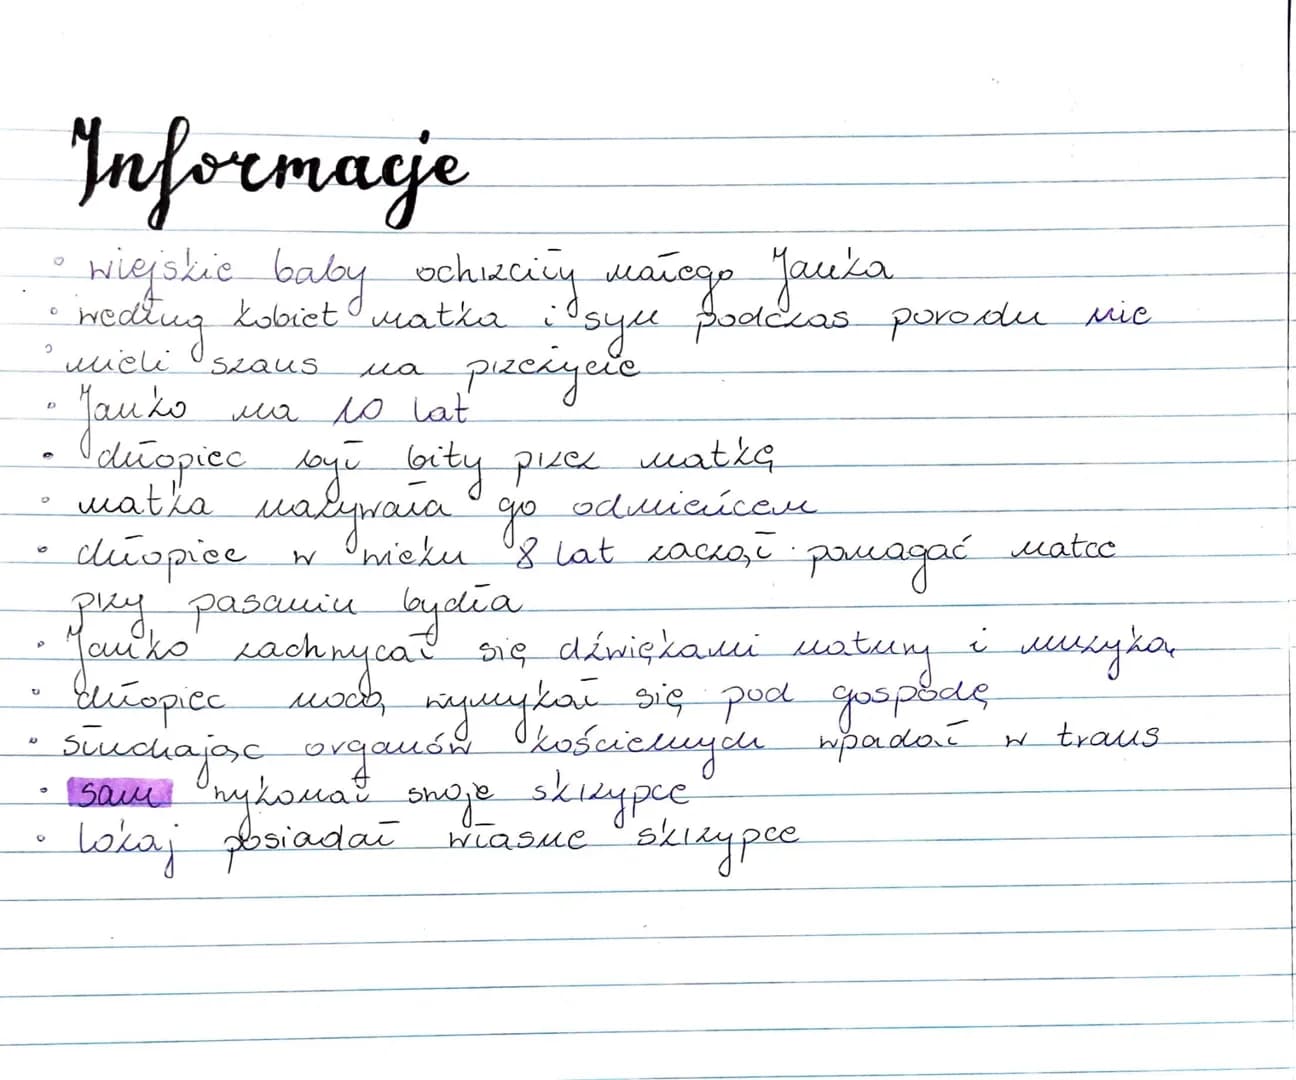 Informacje
• wiejskie baby ochrzciły małego Janka
• według kobiet matka i syn podczas porodu nie
• mieli szans na przeżycie
• Janko ma 10 lat
• chłopiec był bity przez matkę
• matka nazywała go odmieńcem
• chłopiec w wieku 8 lat zaczął pomagać matce
przy pasaniu bydła
• Janko zachwycał się dźwiękami natury i muzyką
• chłopiec nocą wymykał się pod gospodę
• słuchając organów kościelnych wpadał w trans
• sam wykonał swoje skrzypce
• lokaj posiadał własne skrzypce